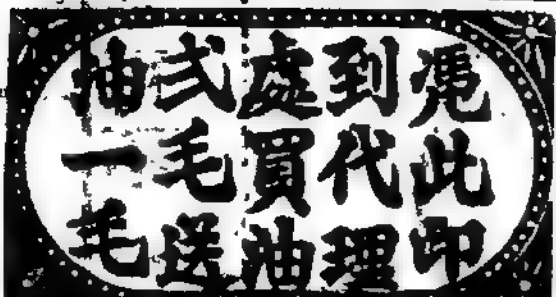 凴此印
到代理
處買油
弍毛送
油一毛